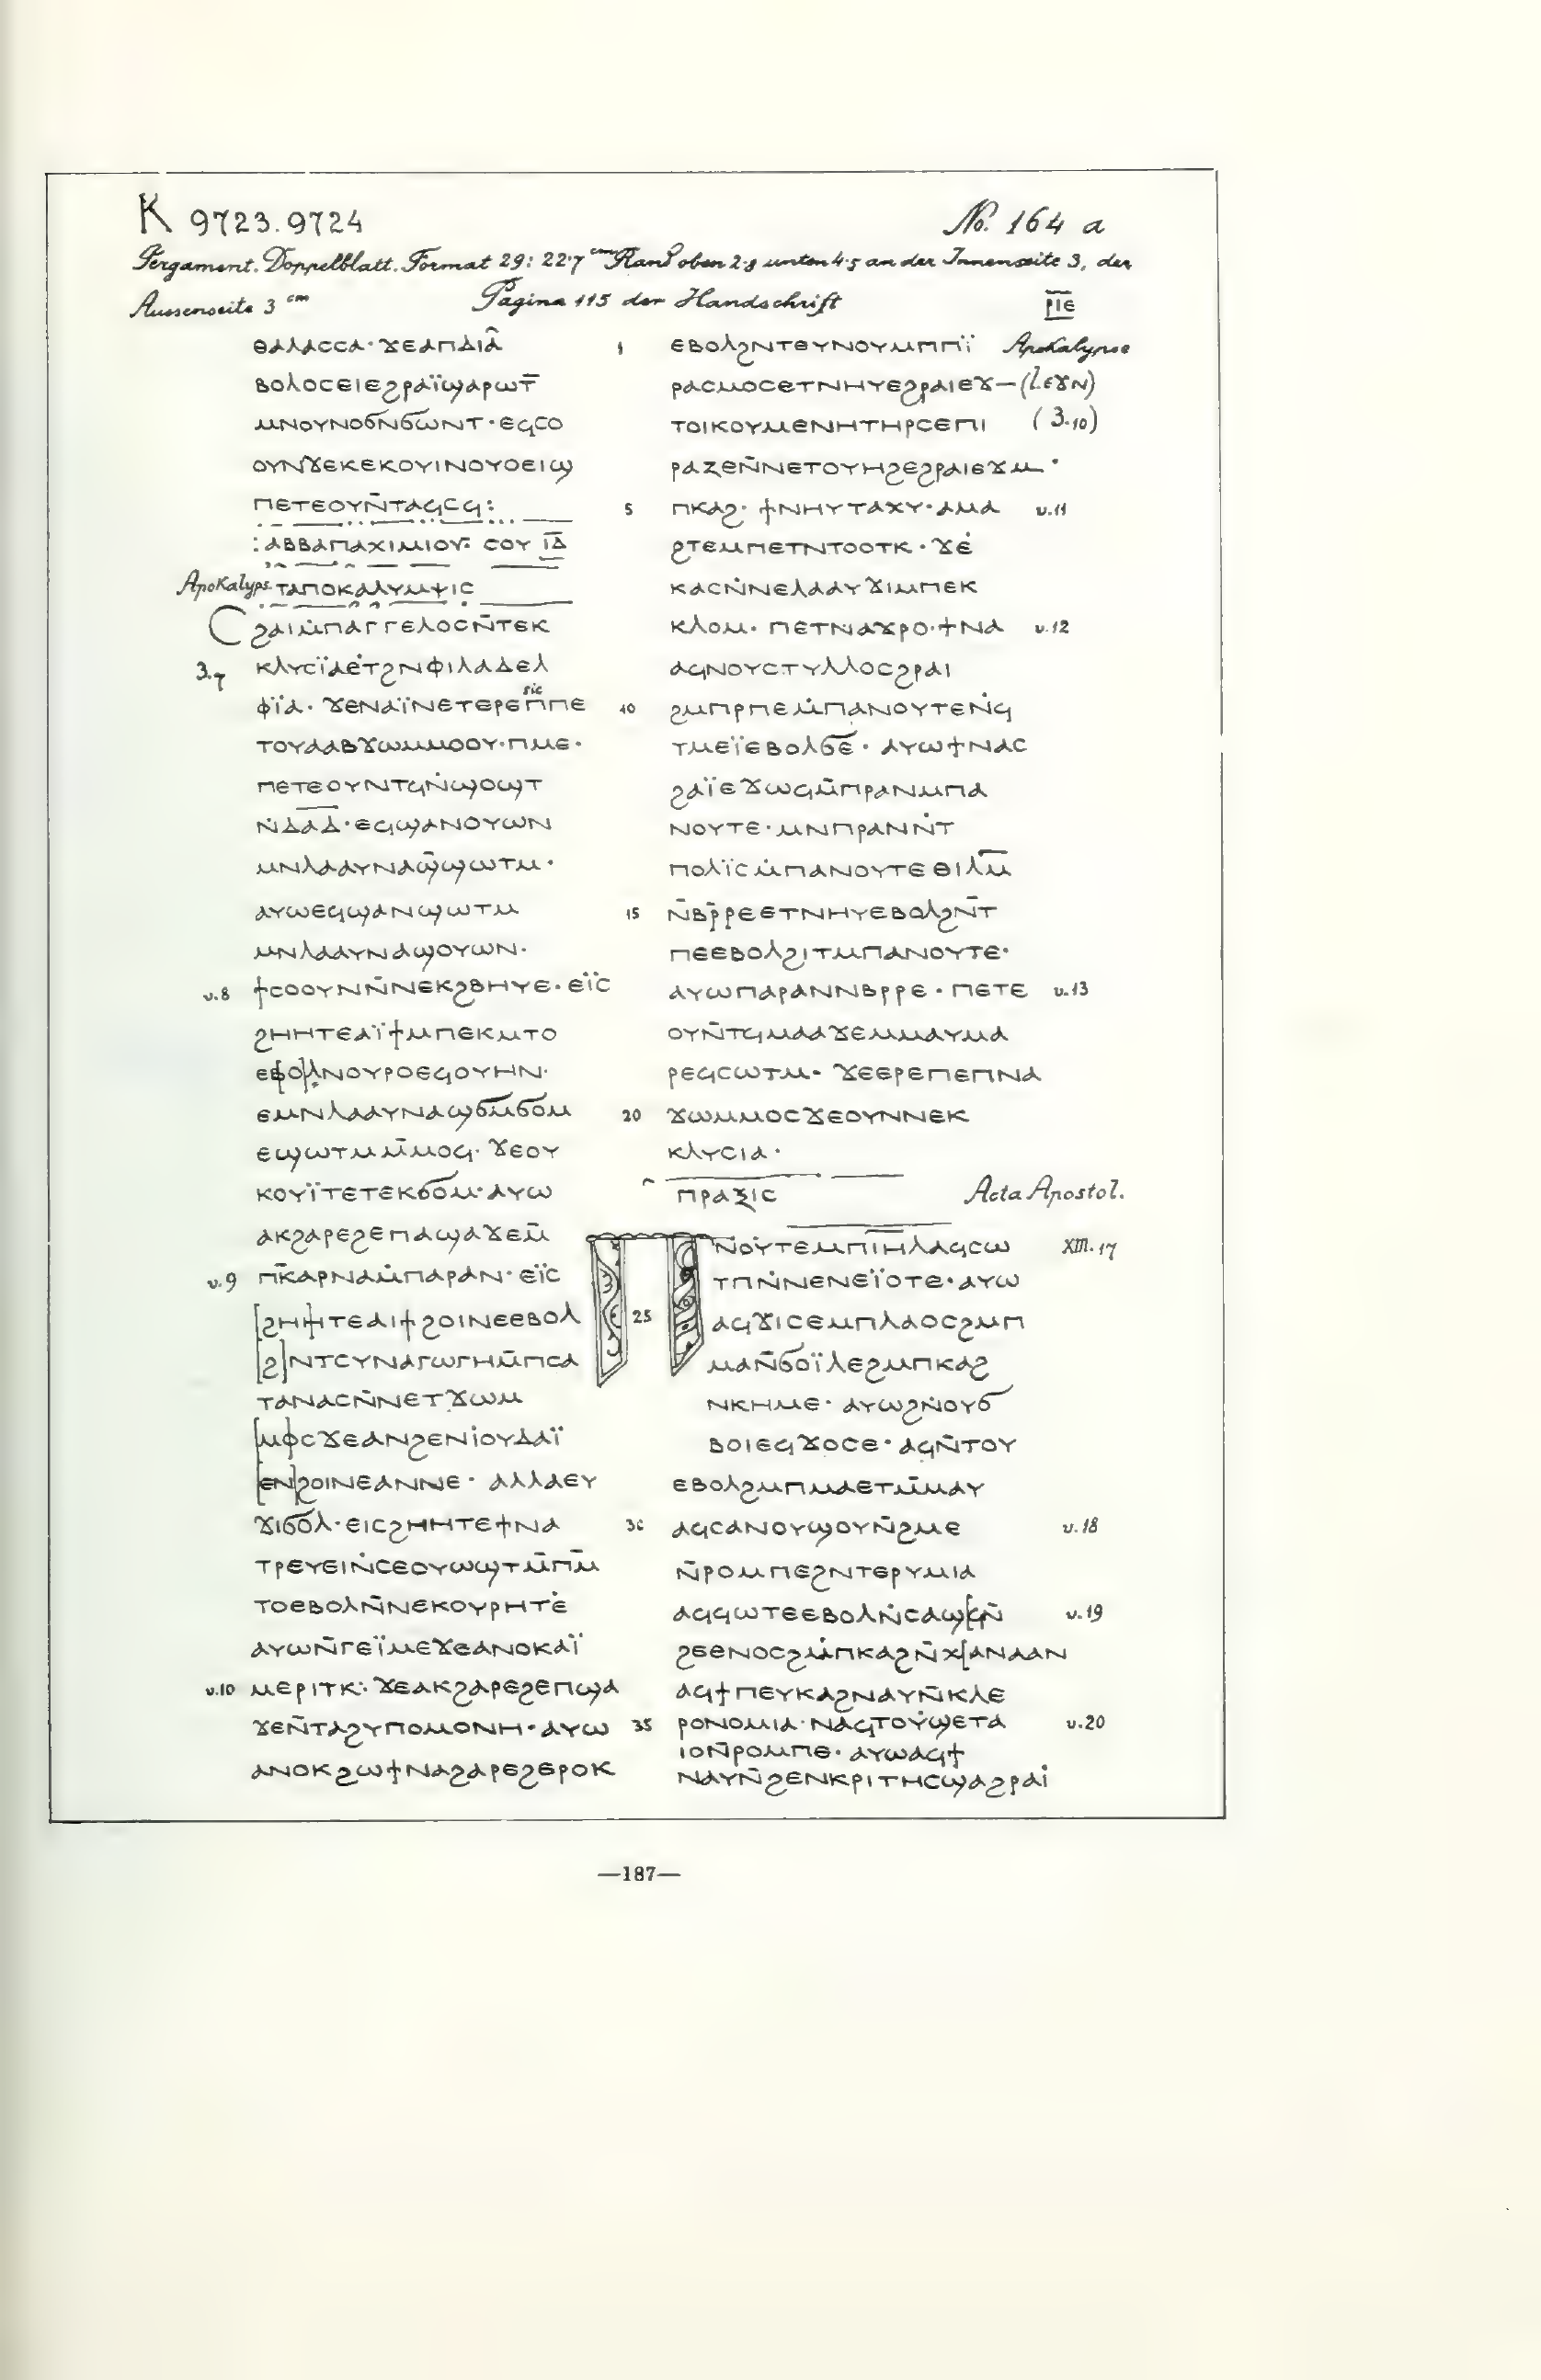 K 9723. 9724
No. 164 a
Pergament. Doppelblatt. Format 29: 22·7 cm Rand oben 2·8 unten 4·5 an der Innenseite 3, der
Aussenseite 3 cm
Pagina 115 der Handschrift
ⲣⲓⲉ
ⲑⲁⲗⲁⲥⲥⲁ· ϫⲉⲁⲡⲇⲓⲁ̂
ⲃⲟⲗⲟⲥⲉⲓⲉϩⲣⲁⲓ̈ϣⲁⲣⲱⲧ̅
ⲙⲛⲟⲩⲛⲟϭⲛϭⲱⲛⲧ· ⲉϥⲥⲟ
ⲟⲩⲛϫⲉⲕⲉⲕⲟⲩⲓⲛⲟⲩⲟⲉⲓϣ
ⲡⲉⲧⲉⲟⲩⲛ̄ⲧⲁϥⲥϥ:
:ⲁⲃⲃⲁⲡⲁⲭⲓⲙⲓⲟⲩ: ⲥⲟⲩ ⲓ̅ⲇ̅
Apokalyps. ⲧⲁⲡⲟⲕⲁⲗⲩⲙⲯⲓⲥ
Ⲥϩⲁⲓⲙ̇ⲡⲁⲅⲅⲉⲗⲟⲥⲛ̄ⲧⲉⲕ
3.7 ⲕⲗⲩⲥⲓ̈ⲁⲉ̇ⲧϩⲛⲫⲓⲗⲁⲇⲉⲗ
ⲫⲓ̈ⲁ· ϫⲉⲛⲁⲓ̈ⲛⲉⲧⲉⲣⲉⲡ̅ⲡⲉ sic
ⲧⲟⲩⲁⲁⲃϫⲱⲙⲙⲟⲟⲩ·ⲡⲙⲉ·
ⲡⲉⲧⲉⲟⲩⲛⲧϥⲛ̇ϣⲟϣⲧ
ⲛ̇ⲇ̅ⲁ̅ⲇ̅·ⲉϥϣⲁⲛⲟⲩⲱⲛ
ⲙⲛⲗⲁⲁⲩⲛⲁϣ̄ϣⲱⲧⲙ·
ⲁⲩⲱⲉϥϣⲁⲛϣⲱⲧⲙ
ⲙⲛⲗⲁⲁⲩⲛⲁϣⲟⲩⲱⲛ·
v.8 ϯⲥⲟⲟⲩⲛⲛ̄ⲛⲉⲕϩⲃⲏⲩⲉ· ⲉⲓ̈ⲥ
ϩⲏⲏⲧⲉⲁⲓ̈ϯⲙⲡⲉⲕⲙⲧⲟ
ⲉⲃ[ⲟ]ⲗⲛⲟⲩⲣⲟⲉϥⲟⲩⲏⲛ·
ⲉⲙⲛⲗⲁⲁⲩⲛⲁϣϭⲙϭⲟⲙ
ⲉϣⲱⲧⲙⲙ̄ⲙⲟϥ· ϫⲉⲟⲩ
ⲕⲟⲩⲓ̈ⲧⲉⲧⲉⲕϭⲟⲙ·ⲁⲩⲱ
ⲁⲕϩⲁⲣⲉϩⲉⲡⲁϣⲁϫⲉⲙ̄
v.9 ⲡ̄ⲕⲁⲣⲛⲁⲙ̇ⲡⲁⲣⲁⲛ· ⲉⲓ̈ⲥ
[ϩⲏⲏ]ⲧⲉⲁⲓϯϩⲟⲓⲛⲉⲉⲃⲟⲗ
[ϩ]ⲛⲧⲥⲩⲛⲁⲅⲱⲅⲏⲙ̄ⲡⲥⲁ
ⲧⲁⲛⲁⲥⲛ̄ⲛⲉⲧϫⲱⲙ
[ⲙⲟ]ⲥϫⲉⲁⲛϩⲉⲛⲓⲟⲩⲇⲁⲓ̈
[ⲉⲛ]ϩⲟⲓⲛⲉⲁⲛⲛⲉ· ⲁⲗⲗⲁⲉⲩ
ϫⲓϭⲟⲗ·ⲉⲓⲥϩⲏⲏⲧⲉϯⲛⲁ
ⲧⲣⲉⲩⲉⲓⲛ̇ⲥⲉⲟⲩⲱϣⲧⲙ̄ⲡⲙ̄
ⲧⲟⲉⲃⲟⲗⲛ̄ⲛⲉⲕⲟⲩⲣⲏⲧⲉ̇
ⲁⲩⲱⲛ̄ⲅⲉⲓ̈ⲙⲉϫⲉⲁⲛⲟⲕⲁⲓ̈
v.10 ⲙⲉⲣⲓⲧⲕ: ϫⲉⲁⲕϩⲁⲣⲉϩⲉⲡϣⲁ
ϫⲉⲛ̄ⲧⲁϩⲩⲡⲟⲙⲟⲛⲏ· ⲁⲩⲱ
ⲁⲛⲟⲕϩⲱϯⲛⲁϩⲁⲣⲉϩⲉⲣⲟⲕ
1 ⲉⲃⲟⲗϩⲛⲧⲉⲩⲛⲟⲩⲙⲡⲡⲓ̈ Apokalypse
ⲣⲁⲥⲙⲟⲥⲉⲧⲛⲏⲩⲉϩⲣⲁⲓⲉϫ— (l. ⲉϫⲛ)
ⲧⲟⲓⲕⲟⲩⲙⲉⲛⲏⲧⲏⲣⲥⲉⲡⲓ (3.10)
ⲣⲁⲍⲉⲛ̄ⲛⲉⲧⲟⲩⲏϩⲉϩⲣⲁⲓⲉϫⲙ·
5 ⲡⲕⲁϩ· ϯⲛⲏⲩⲧⲁⲭⲩ·ⲁⲙⲁ v.11
ϩⲧⲉⲙⲡⲉⲧⲛⲧⲟⲟⲧⲕ· ϫⲉ̇
ⲕⲁⲥⲛ̇ⲛⲉⲗⲁⲁⲩϫⲓⲙⲡⲉⲕ
ⲕⲗⲟⲙ· ⲡⲉⲧⲛⲁϫⲣⲟ·ϯⲛⲁ v.12
ⲁϥⲛⲟⲩⲥⲧⲩⲗⲗⲟⲥϩⲣⲁⲓ
10 ϩⲙⲡⲣⲡⲉⲙ̇ⲡⲁⲛⲟⲩⲧⲉⲛ̇ϥ
ⲧⲙⲉⲓ̈ⲉⲃⲟⲗϭⲉ· ⲁⲩⲱϯⲛⲁⲥ
ϩⲁⲓ̈ⲉϫⲱϥⲙ̄ⲡⲣⲁⲛⲙⲡⲁ
ⲛⲟⲩⲧⲉ·ⲙⲛⲡⲣⲁⲛⲛ̇ⲧ
ⲡⲟⲗⲓ̈ⲥⲙ̇ⲡⲁⲛⲟⲩⲧⲉⲑⲓⲗ̅ⲙ̅
15 ⲛ̄ⲃⲣ̄ⲣⲉⲉⲧⲛⲏⲩⲉⲃⲟⲗϩⲛ̄ⲧ
ⲡⲉⲉⲃⲟⲗϩⲓⲧⲙⲡⲁⲛⲟⲩⲧⲉ·
ⲁⲩⲱⲡⲁⲣⲁⲛⲛⲃⲣⲣⲉ· ⲡⲉⲧⲉ v.13
ⲟⲩⲛ̄ⲧϥⲙⲁⲁϫⲉⲙⲙⲁⲩⲙⲁ
ⲣⲉϥⲥⲱⲧⲙ· ϫⲉⲉⲣⲉⲡⲉⲡⲛⲁ
20 ϫⲱⲙⲙⲟⲥϫⲉⲟⲩⲛⲛⲉⲕ
ⲕⲗⲩⲥⲓⲁ·
ⲡⲣⲁⲝⲓⲥ Acta Apostol.
Ⲡⲛⲟⲩⲧⲉⲙⲡⲓ̅ⲏ̅ⲗⲁϥⲥⲱ XIII.17
ⲧⲡⲛ̇ⲛⲉⲛⲉⲓ̈ⲟⲧⲉ·ⲁⲩⲱ
25 ⲁϥϫⲓⲥⲉⲙⲡⲗⲁⲟⲥϩⲙⲡ
ⲙⲁⲛ̄ϭⲟⲓ̈ⲗⲉϩⲙⲡⲕⲁϩ
ⲛⲕⲏⲙⲉ· ⲁⲩⲱϩⲛ̇ⲟⲩϭ
ⲃⲟⲓⲉϥϫⲟⲥⲉ· ⲁϥⲛ̄ⲧⲟⲩ
ⲉⲃⲟⲗϩⲙⲡⲙⲁⲉⲧⲙ̄ⲙⲁⲩ
30 ⲁϥⲥⲁⲛⲟⲩϣⲟⲩⲛ̄ϩⲙⲉ v.18
ⲛ̄ⲣⲟⲙⲡⲉϩⲛⲧⲉⲣⲩⲙⲓⲁ
ⲁϥϥⲱⲧⲉⲉⲃⲟⲗⲛ̇ⲥⲁϣ[ϥⲛ̄ v.19
ϩⲉⲑⲛⲟⲥϩⲙ̇ⲡⲕⲁϩⲛ̄ⲭ[ⲁⲛⲁⲁⲛ
ⲁϥϯⲡⲉⲩⲕⲁϩⲛⲁⲩⲛ̄ⲕⲗⲉ
35 ⲣⲟⲛⲟⲙⲓⲁ·ⲛⲁϥⲧⲟⲩϣⲉⲧⲁ v.20
ⲓⲟⲛ̄ⲣⲟⲙⲡⲉ· ⲁⲩⲱⲁϥϯ
ⲛⲁⲩⲛ̄ϩⲉⲛⲕⲣⲓⲧⲏⲥϣⲁϩⲣⲁⲓ̇
—187—